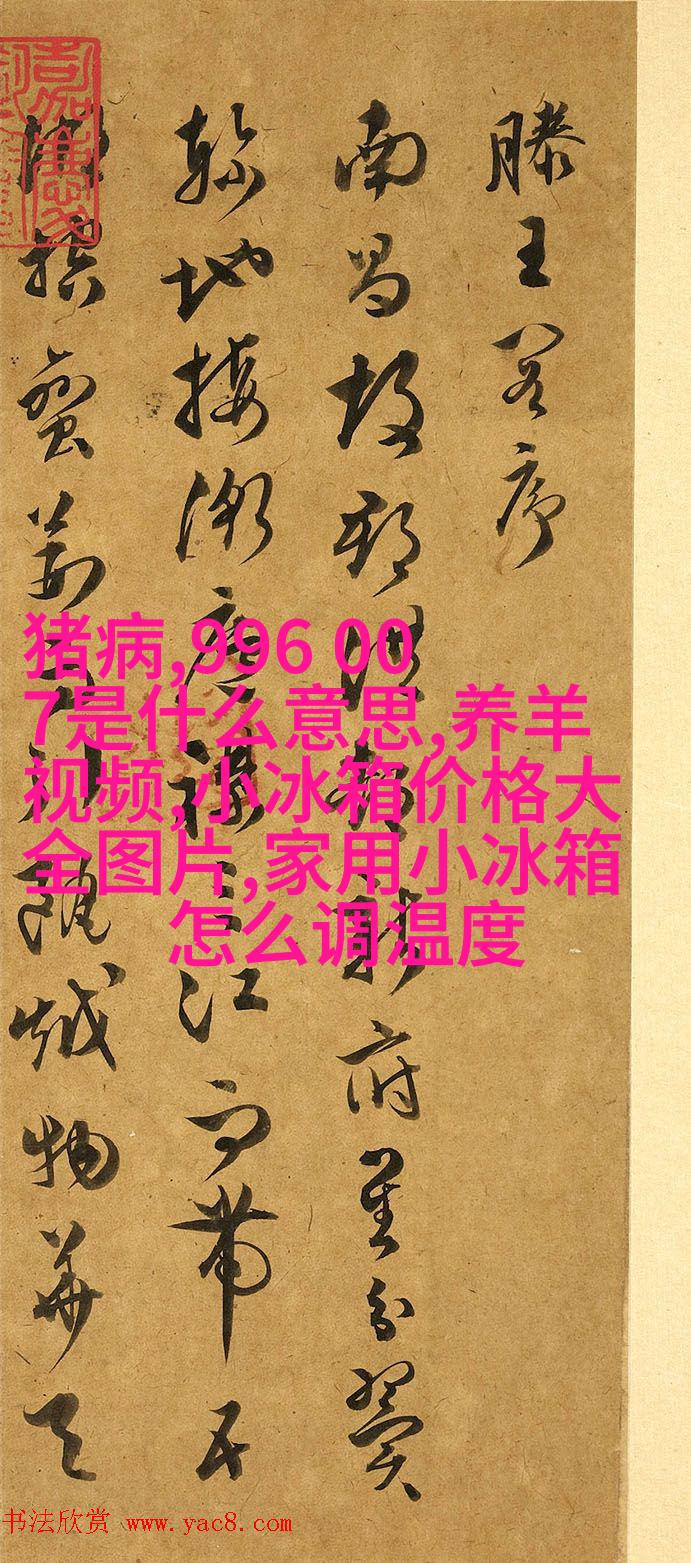 滕王阁序
南昌故郡洪都新府星分翼
轸地接衡庐襟三江而带五
湖控蛮荆而引瓯越物华天
猪病,996 00
7是什么意思,养羊
视频,小冰箱价格大
全图片,家用小冰箱
怎么调温度
书法欣赏 www.yac8.com